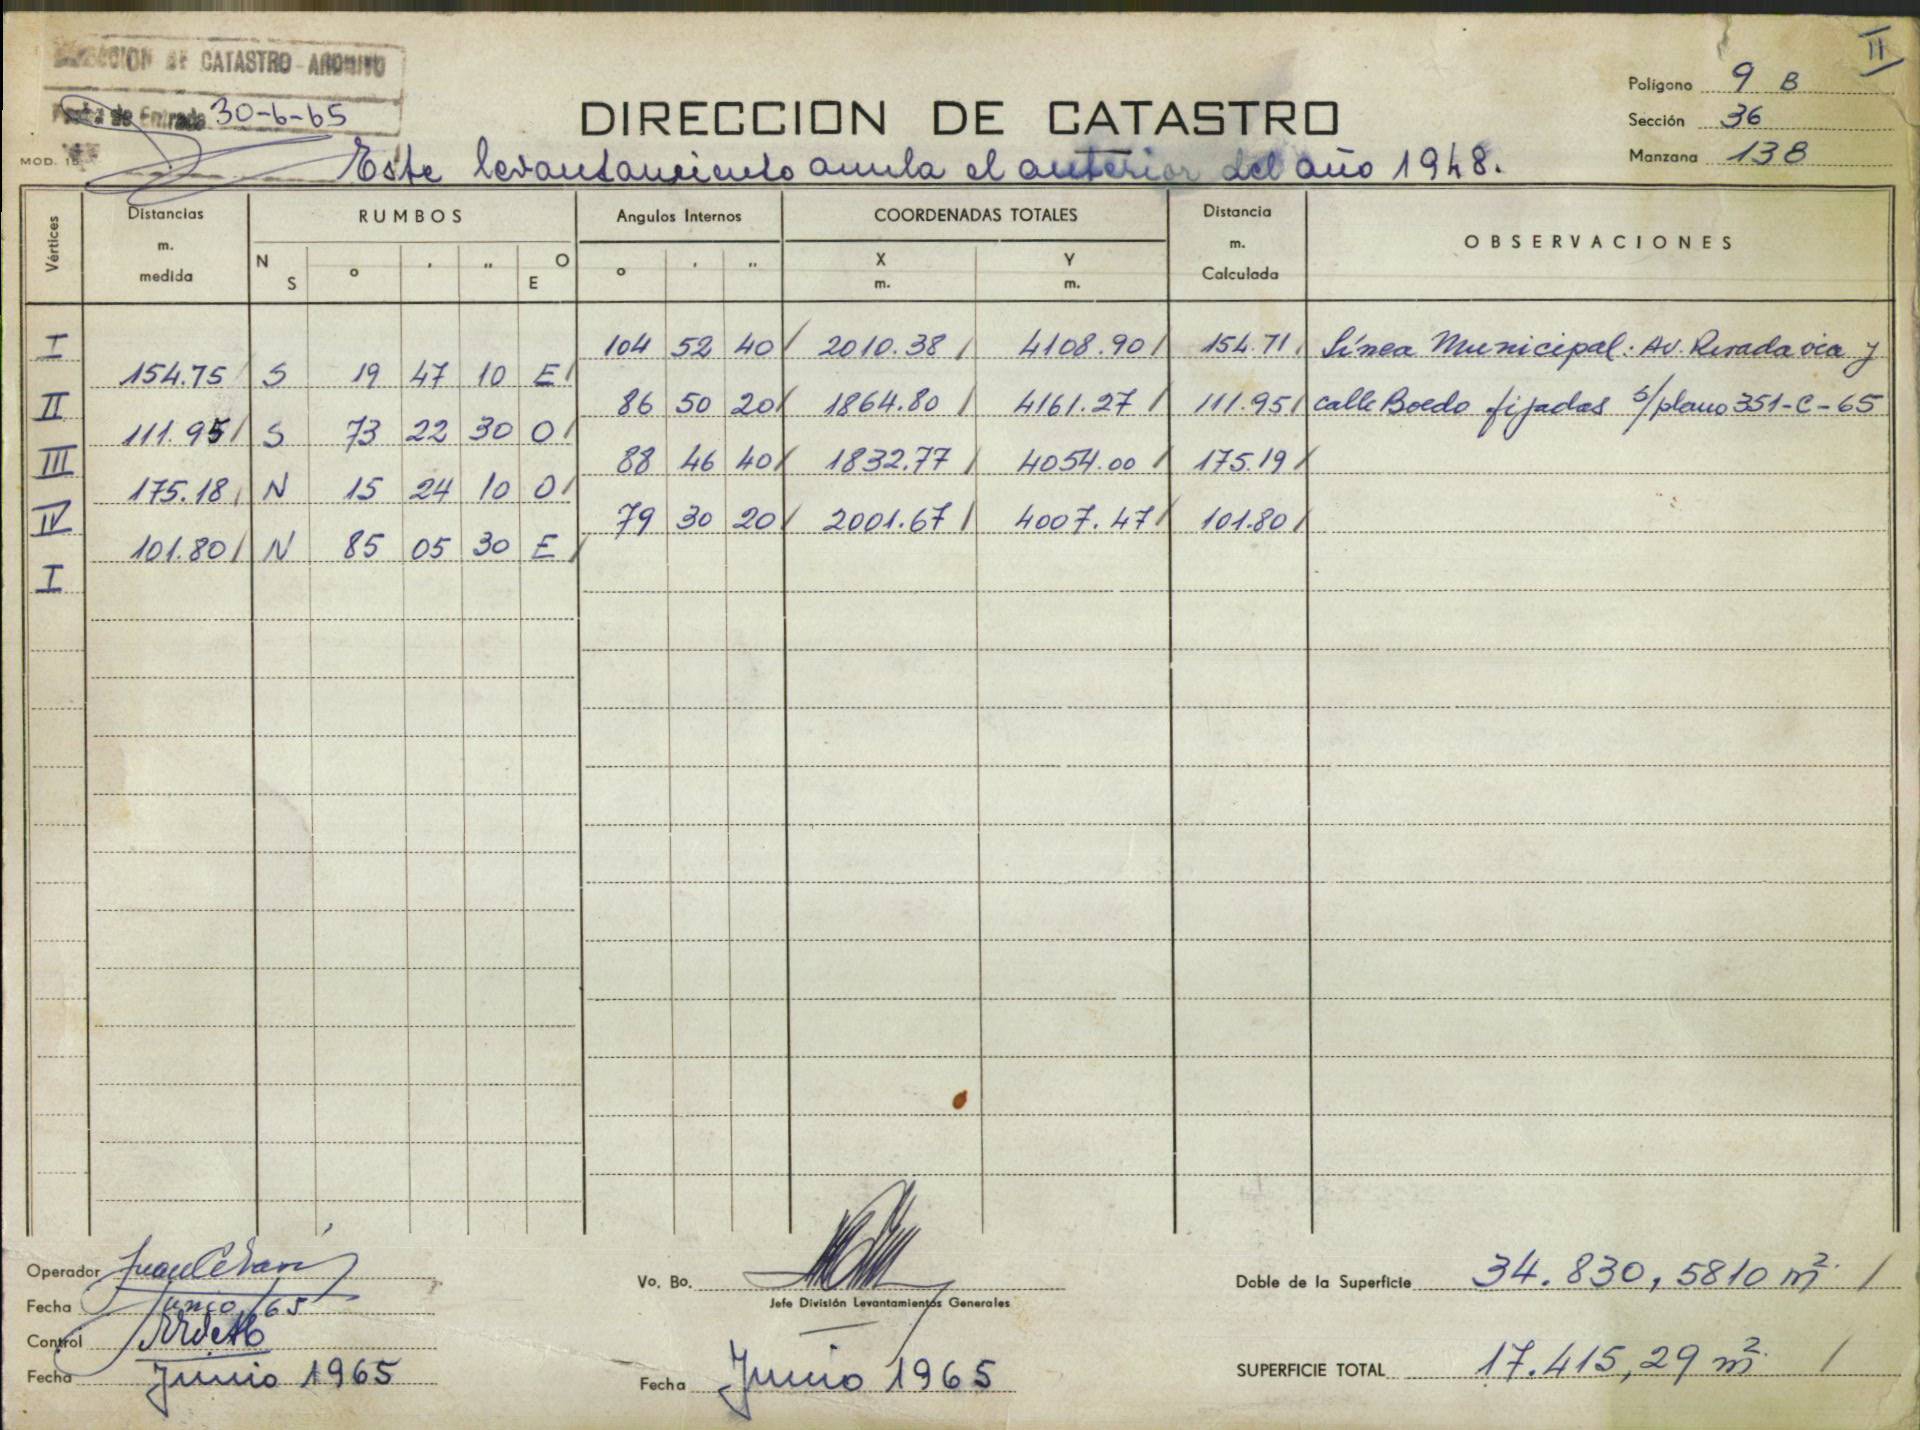 II
DIRECCION DE CATASTRO - ARCHIVO
Fecha de Entrada 30-6-65
MOD.
DIRECCION DE CATASTRO
Polígono 9 B
Sección 36
Manzana 138
Este levantamiento anula el anterior del año 1948.
Vértices
Distancias m. medida
RUMBOS
N S ° ' " O E
Angulos Internos
° ' "
COORDENADAS TOTALES
X m. Y m.
Distancia m. Calculada
OBSERVACIONES
I 104 52 40 2010.38 4108.90 154.71 Línea Municipal: Av. Rivadavia y
154.75 S 19 47 10 E
II 86 50 20 1864.80 4161.27 111.95 calle Boedo fijadas s/plano 351-C-65
111.95 S 73 22 30 O
III 88 46 40 1832.77 4054.00 175.19
175.18 N 15 24 10 O
IV 79 30 20 2001.67 4007.47 101.80
101.80 N 85 05 30 E
I
Operador
Fecha Junio/65
Control
Fecha Junio 1965
Vo. Bo.
Jefe División Levantamientos Generales
Fecha Junio 1965
Doble de la Superficie 34.830,5810 m²
SUPERFICIE TOTAL 17.415,29 m²